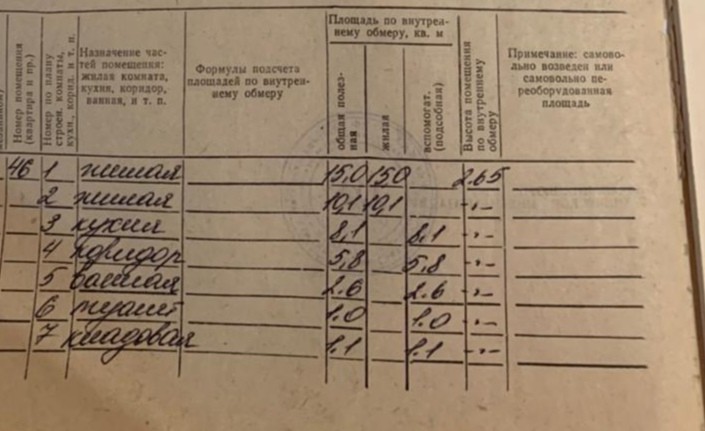 Номер помещения (квартира и пр.)
Номер по плану строен. комнаты, кухн., корид. и т. п.
Назначение час-
тей помещения:
жилая комната,
кухня, коридор,
ванная, и т. п.
Формулы подсчета
площадей по внутрен-
нему обмеру
Площадь по внутрен-
нему обмеру, кв. м
общая полез-
ная
жилая
вспомогат.
(подсобная)
Высота помещения
по внутреннему
обмеру
Примечание: самоволь-
но возведен или
самовольно пе-
реоборудованная
площадь
46 1 жилая 15.0 15.0 2.65
2 жилая 10,1 10,1 -"-
3 кухня 8,1 8,1 -"-
4 коридор 5,8 5,8 -"-
5 ванная 2.6 2.6 -"-
6 туалет 1.0 1.0 -"-
7 кладовая 1.1 1.1 -"-